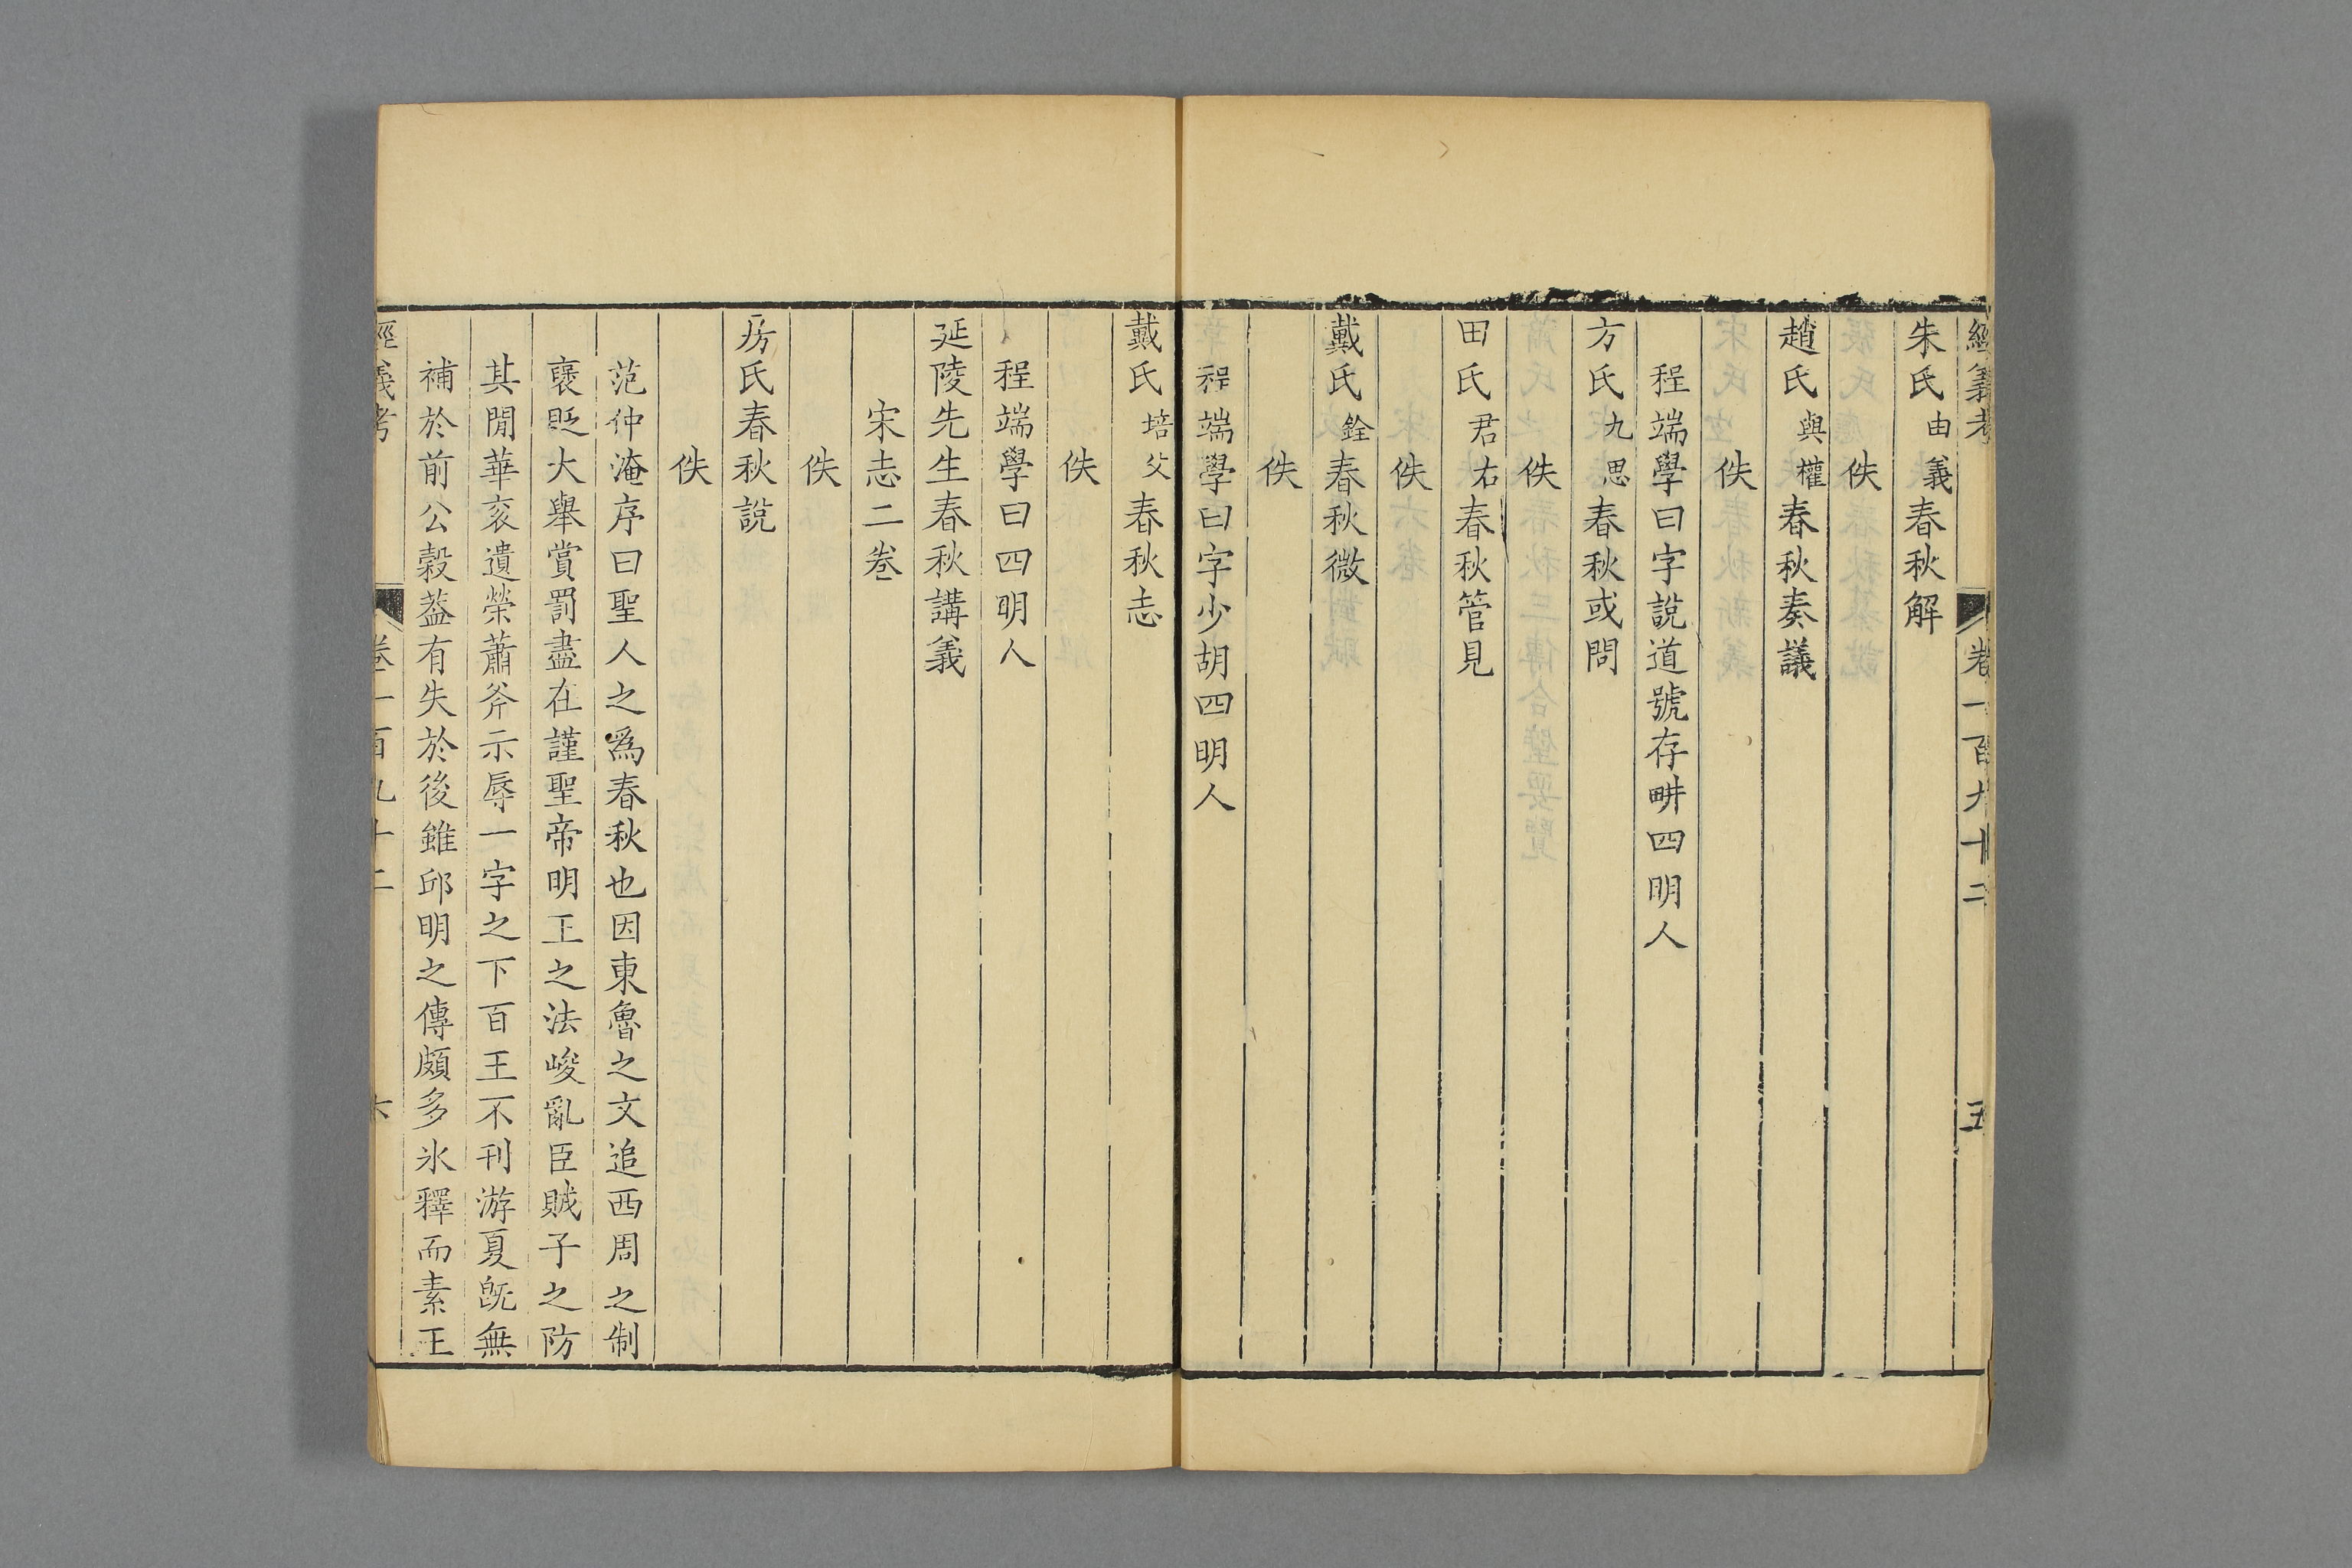 經義考 卷一百九十二 五
朱氏由義春秋解
佚
趙氏與權春秋奏議
佚
程端學曰字說道號存畊四明人
方氏九思春秋或問
佚
田氏君右春秋管見
佚
戴氏銓春秋微
佚
程端學曰字少胡四明人
戴氏培父春秋志
佚
程端學曰四明人
延陵先生春秋講義
宋志二卷
佚
房氏春秋說
佚
范仲淹序曰聖人之爲春秋也因東魯之文追西周之制
襃貶大舉賞罰盡在謹聖帝明王之法峻亂臣賊子之防
其閒華衮遺榮蕭斧示辱一字之下百王不刊游夏旣無
補於前公穀葢有失於後雖邱明之傳頗多氷釋而素王
經義考 卷一百九十二 六